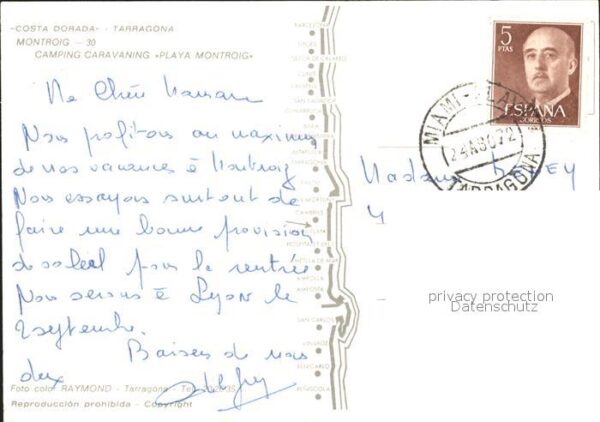 «COSTA DORADA» - TARRAGONA
MONTROIG - 30
CAMPING CARAVANING «PLAYA MONTROIG»
Ma Chère Maman
Nous profitons au maximum
de nos vacances à Montroig
Nous essayons surtout de
faire une bonne provision
de soleil pour la rentrée
Nous serons à Lyon le
2 septembre.
Baisers de nous
deux
Foto color RAYMOND - Tarragona
Reproducción prohibida - Copyright
BARCELONA
SITGES
CUNIT
CAMBRILS
AMPOLLA
SAN CARLOS
VINAROZ
BENICARLO
PEÑISCOLA
5
PTAS
ESPAÑA
CORREOS
MIAMI-PLAYA
24 AGO 72
TARRAGONA
Madame
privacy protection
Datenschutz